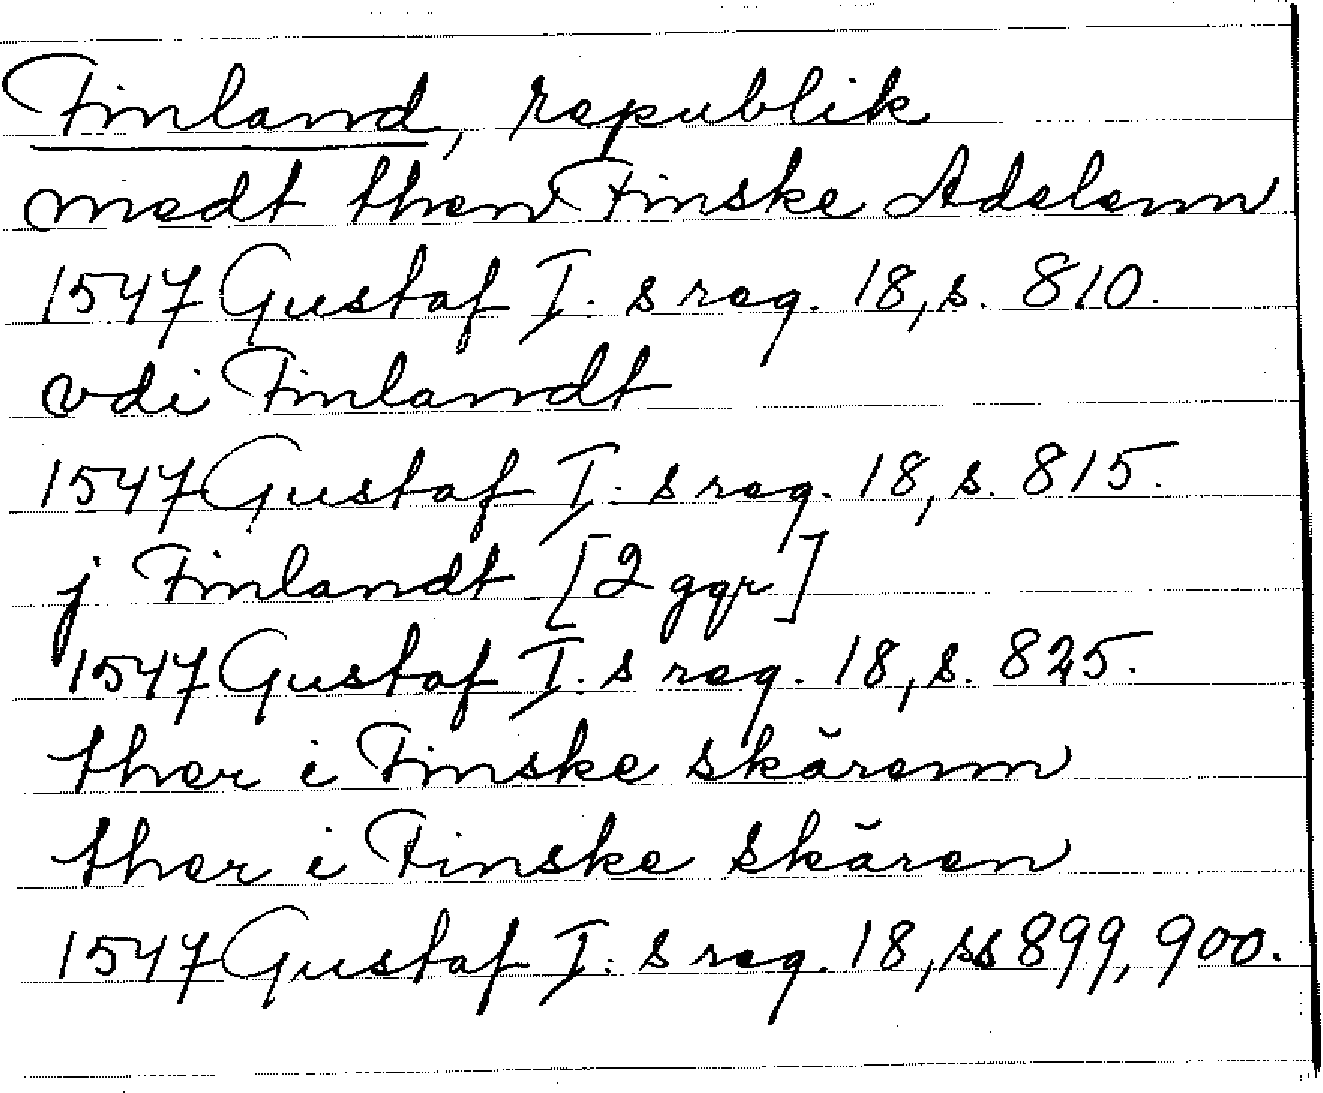 Finland, republik
medt then Finske Adelenn
1547 Gustaf I. s reg. 18, s. 810.
vdi Finlandt
1547 Gustaf I: s reg. 18, s. 815.
j Finlandt [2 ggr]
1547 Gustaf I: s reg. 18, s. 825.
ther i Finske skärenn
ther i Finske skären
1547 Gustaf I: s reg. 18, ss 899, 900.